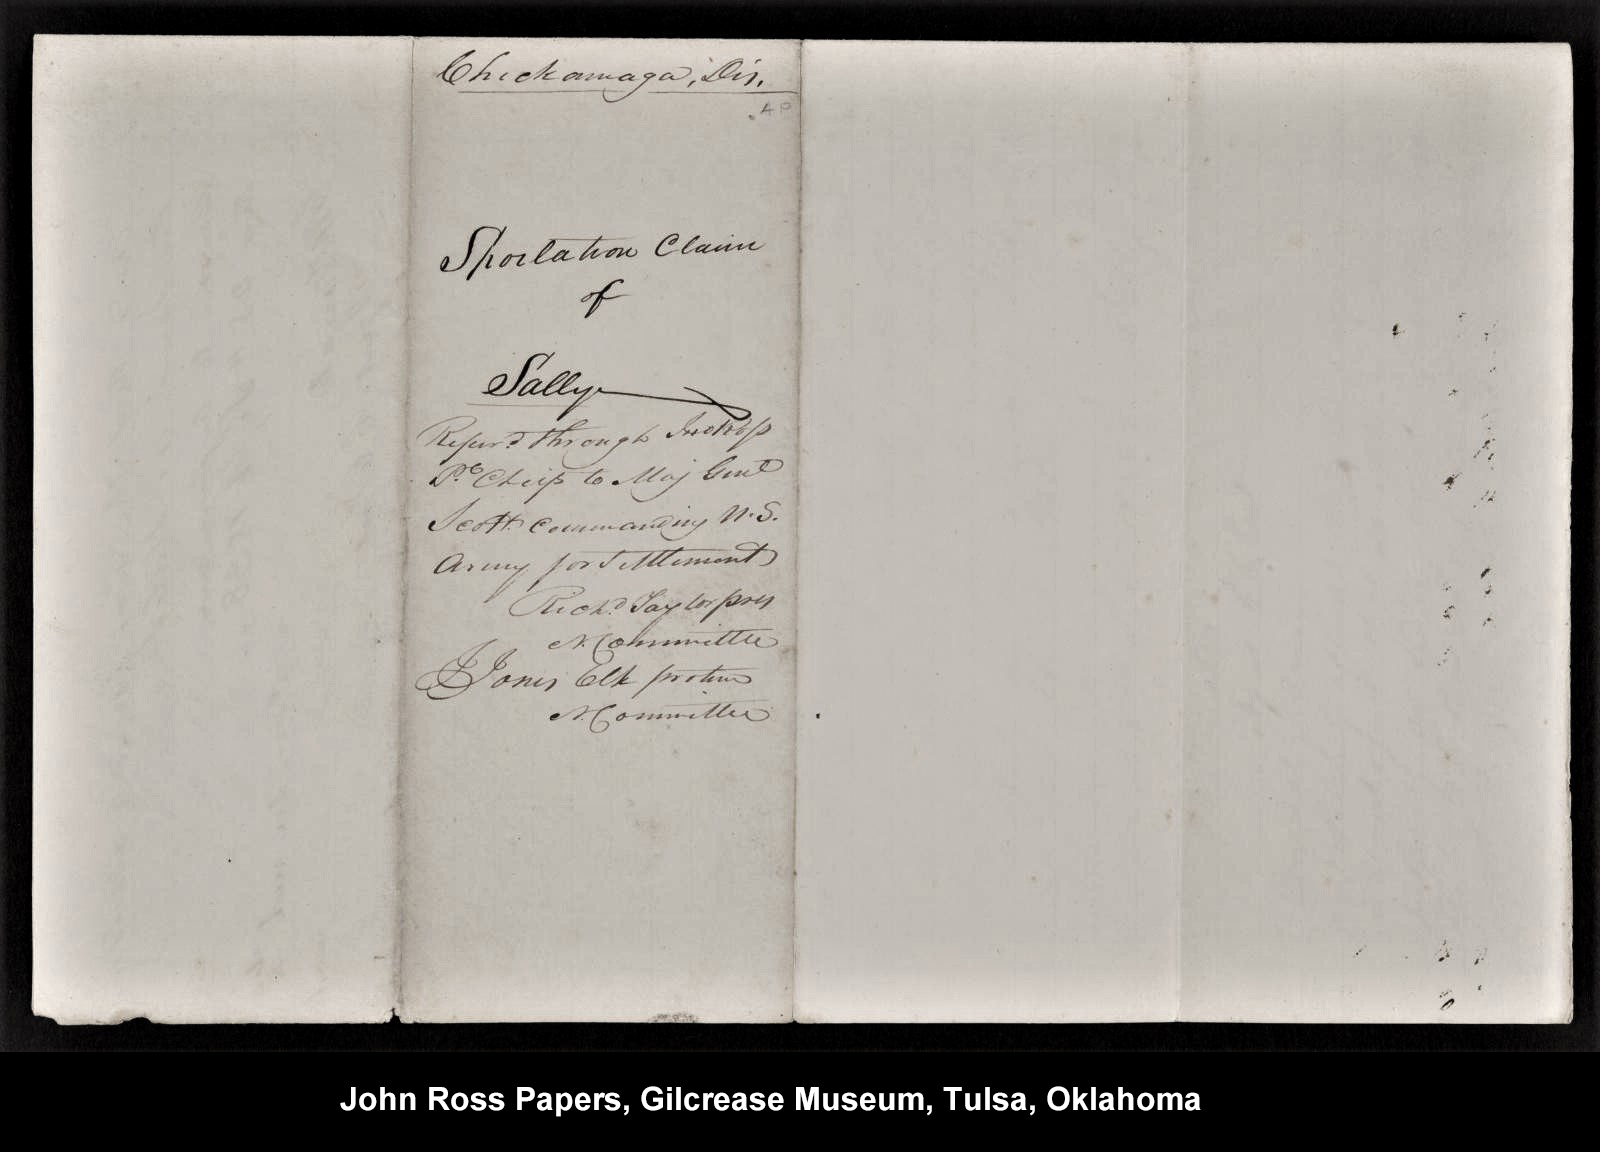 Chickamaga, Dis,
AP
Spoilation Claim
of
Sally
Refer'd through Jno Ross
Pr. Chief to Maj Genl
Scott Commanding U.S.
Army for Settlement
Richd. Taylor pres
N. Committee
J Jones Clk protem
N. Committee
John Ross Papers, Gilcrease Museum, Tulsa, Oklahoma